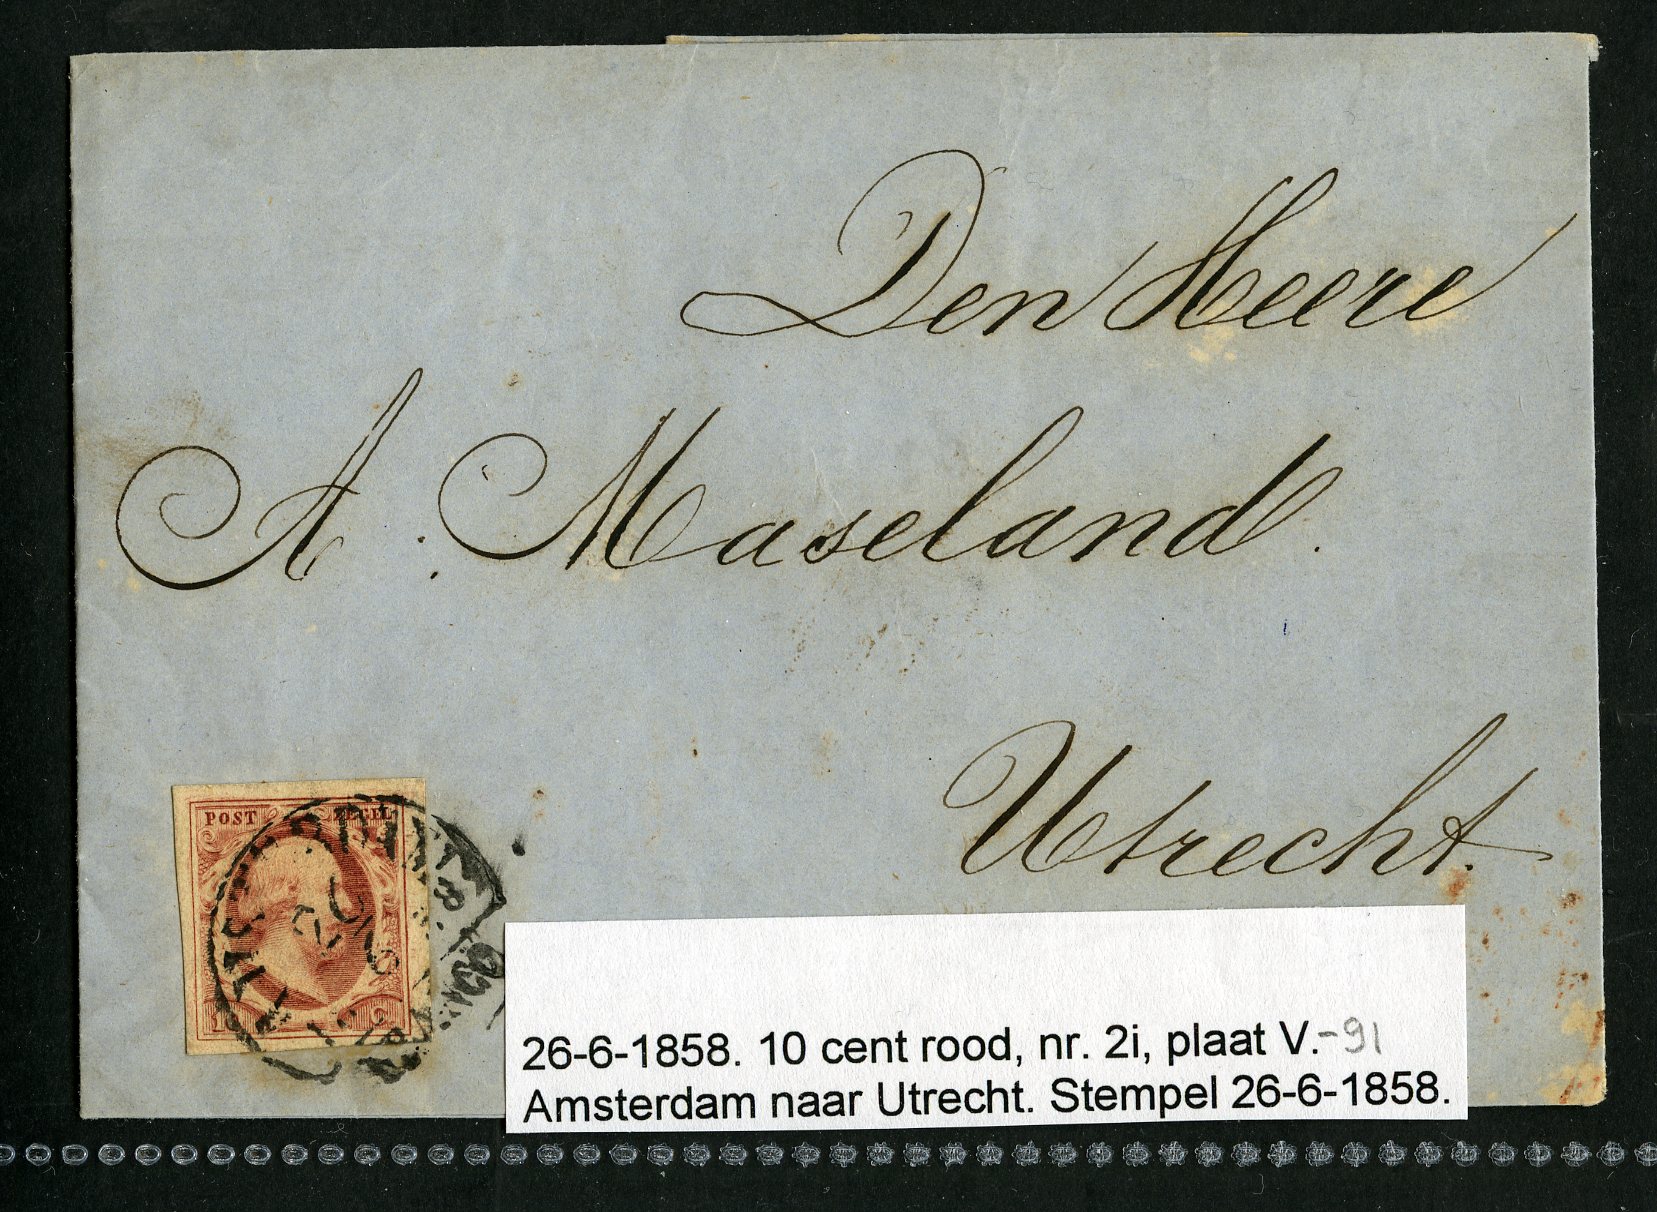 Den Heere
A. Maseland.
Utrecht.
POST ZEGEL
AMSTERDAM
26-6-1858. 10 cent rood, nr. 2i, plaat V.-91
Amsterdam naar Utrecht. Stempel 26-6-1858.